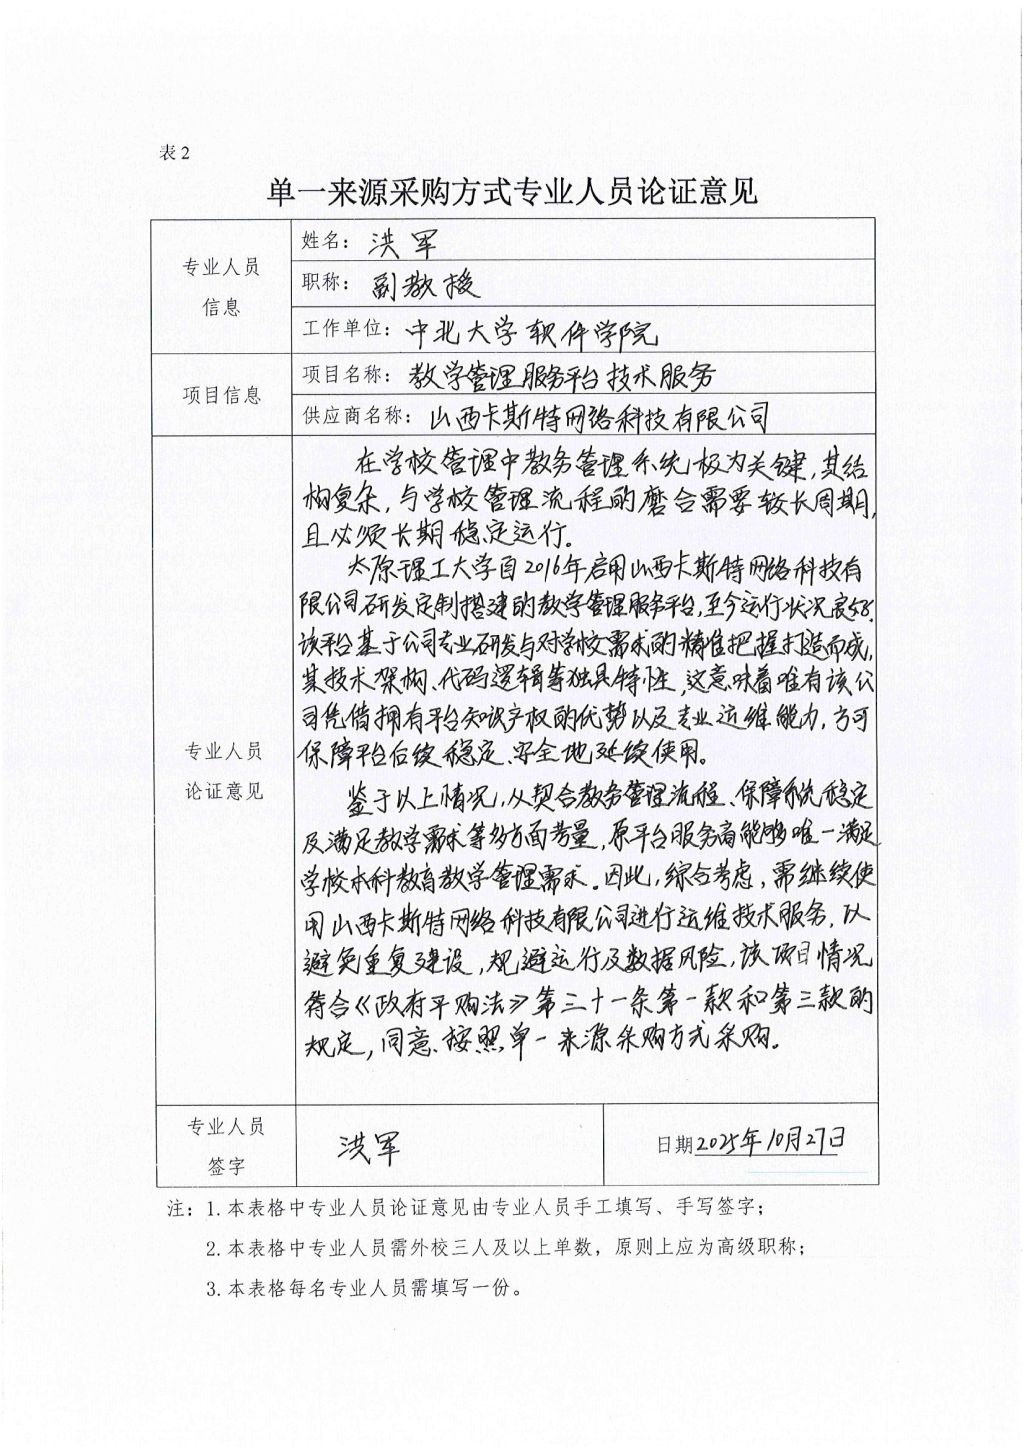 表2
单一来源采购方式专业人员论证意见
专业人员
信息
姓名：洪军
职称：副教授
工作单位：中北大学软件学院
项目信息
项目名称：教学管理服务平台技术服务
供应商名称：山西卡斯特网络科技有限公司
专业人员
论证意见
在学校管理中教务管理系统极为关键，其结
构复杂，与学校管理流程的磨合需要较长周期，
且必须长期稳定运行。
太原理工大学自2016年启用山西卡斯特网络科技有
限公司研发定制搭建的教学管理服务平台，至今运行状况良好。
该平台基于公司专业研发与对学校需求的精准把握打造而成，
其技术架构、代码逻辑等独具特性，这意味着唯有该公
司凭借拥有平台知识产权的优势以及专业运维能力，方可
保障平台后续稳定、安全地延续使用。
鉴于以上情况，从契合教务管理流程、保障系统稳定
及满足教学需求等多方面考量，原平台服务商能够唯一满足
学校本科教育教学管理需求。因此，综合考虑，需继续使
用山西卡斯特网络科技有限公司进行运维技术服务，以
避免重复建设，规避运行及数据风险，该项目情况
符合《政府采购法》第三十一条第一款和第三款的
规定，同意按照单一来源采购方式采购。
专业人员
签字
洪军
日期2025年10月27日
注：1.本表格中专业人员论证意见由专业人员手工填写、手写签字；
2.本表格中专业人员需外校三人及以上单数，原则上应为高级职称；
3.本表格每名专业人员需填写一份。